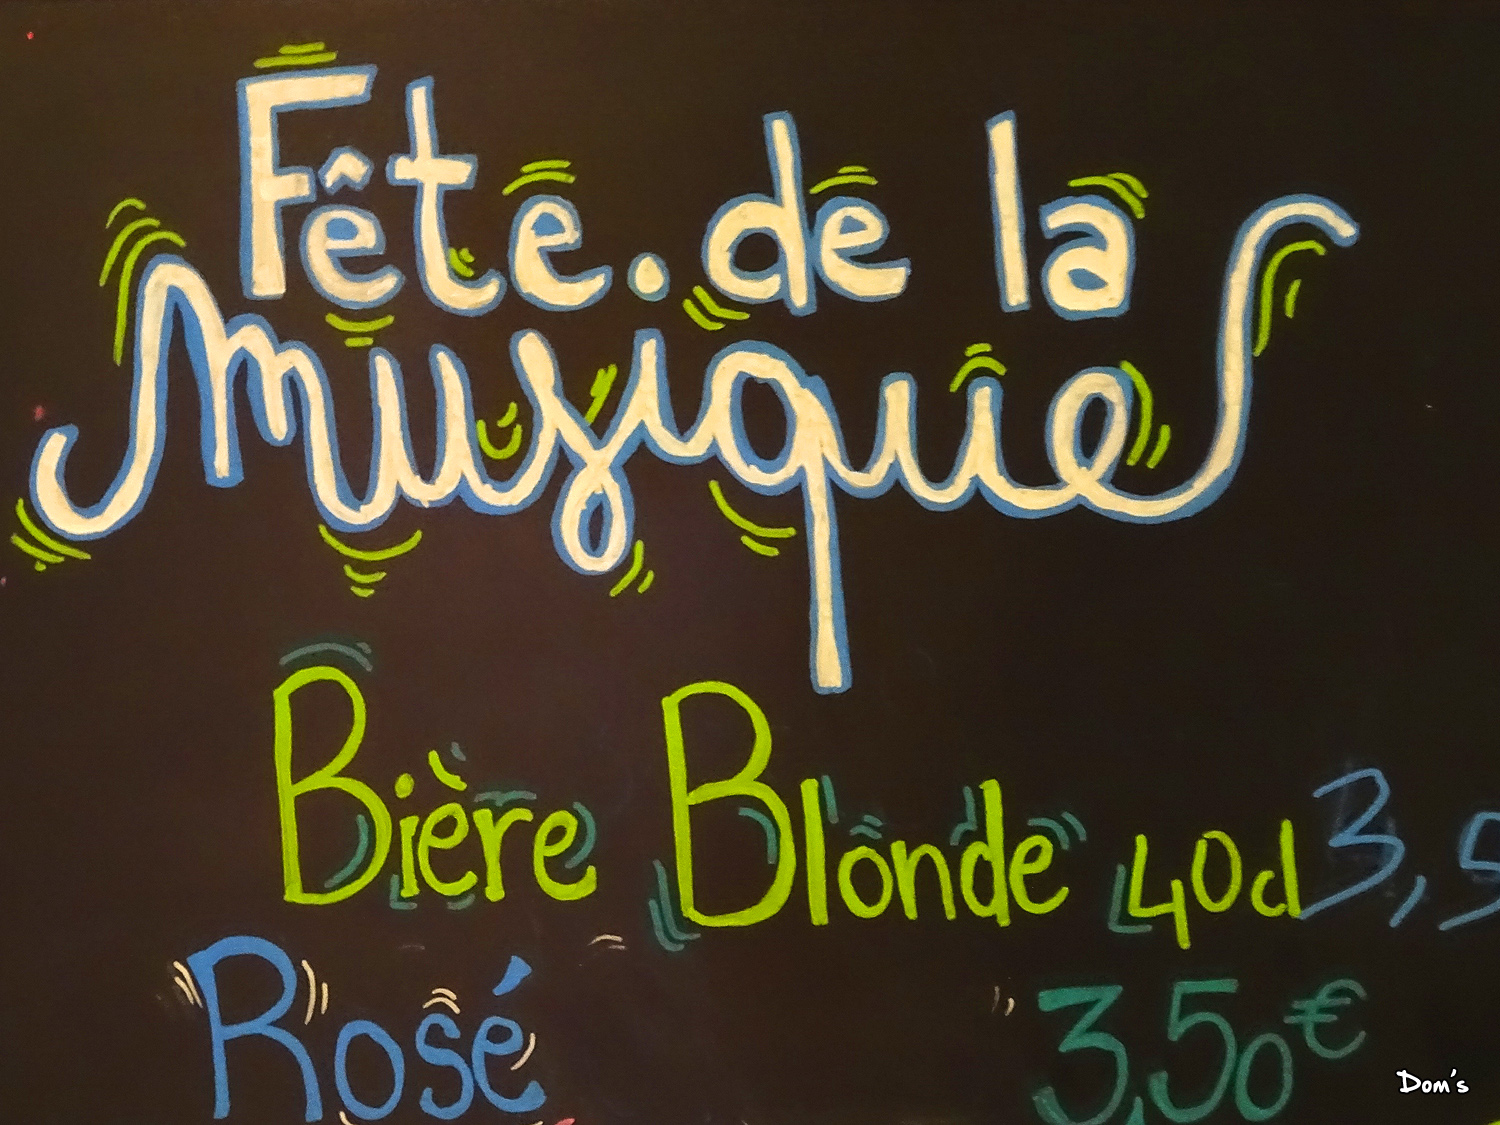 Fête. de la
Musique
Bière Blonde 40cl 3,5
Rosé 3,50€
Dom's